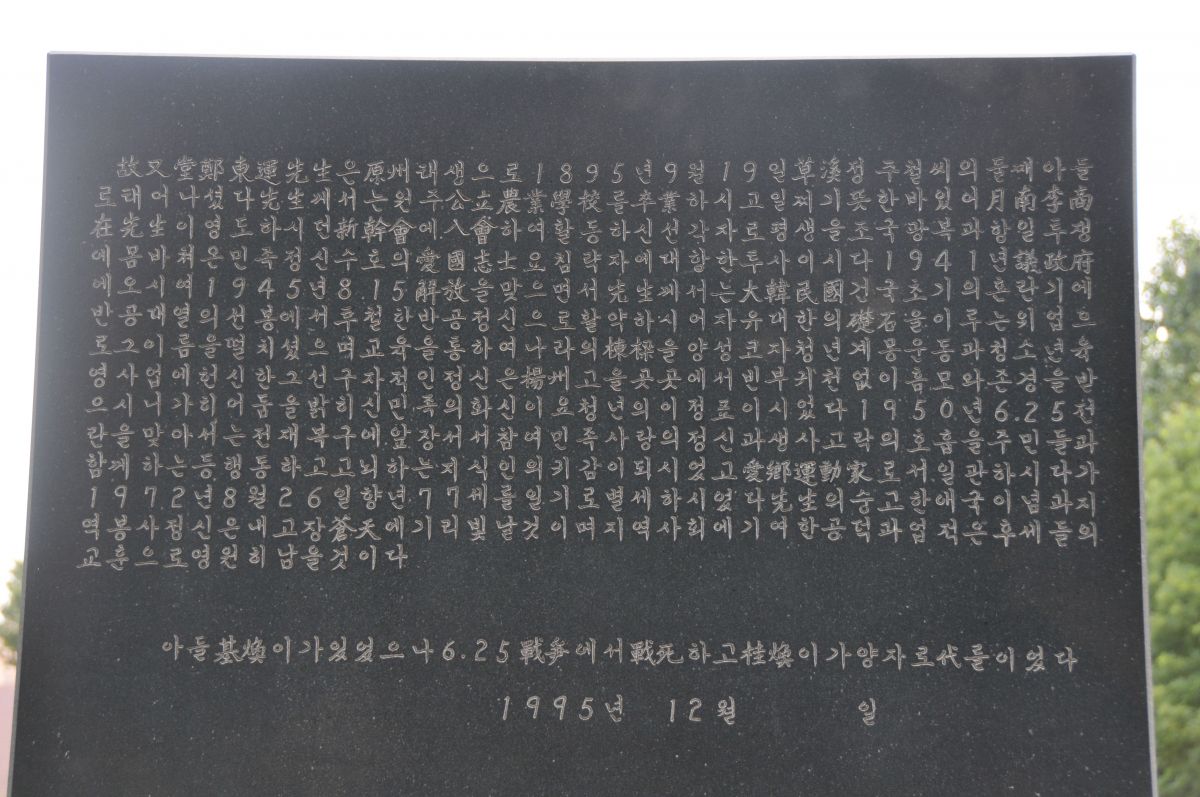 故又堂鄭東運先生은原州태생으로1895년9월19일草溪정주철씨의둘째아들
로태어나셨다先生께서는원주公立農業學校를卒業하시고일찌기뜻한바있어月南李商
在先生이영도하시던新幹會에入會하여활동하신선각자로평생을조국광복과항일투쟁
에몸바쳐온민족정신수호의愛國志士요침략자에대항한투사이시다1941년議政府
에오시여1945년815解放을맞으면서先生께서는大韓民國건국초기의혼란기에
반공대열의선봉에서투철한반공정신으로활약하시어자유대한의礎石을이루는위업으
로그이름을떨치셨으며교육을통하여나라의棟樑을양성코자청년계몽운동과청소년육
영사업에헌신한그선구자적인정신은楊州고을곳곳에서빈부귀천없이흠모와존경을받
으시니가히어둠을밝히신민족의화신이요청년의이정표이시었다1950년6.25전
란을맞아서는전재복구에앞장서서참여민족사랑의정신과생사고락의호흡을주민들과
함께하는등행동하고고뇌하는지식인의키감이되시었고愛鄉運動家로서일관하시다가
1972년8월26일향년77세를일기로별세하시었다先生의숭고한애국이념과지
역봉사정신은내고장蒼天에기리빛날것이며지역사회에기여한공덕과업적은후세들의
교훈으로영원히남을것이다
아들基煥이가있었으나6.25戰爭에서戰死하고桂煥이가양자로代를이었다
1995년 12월 일